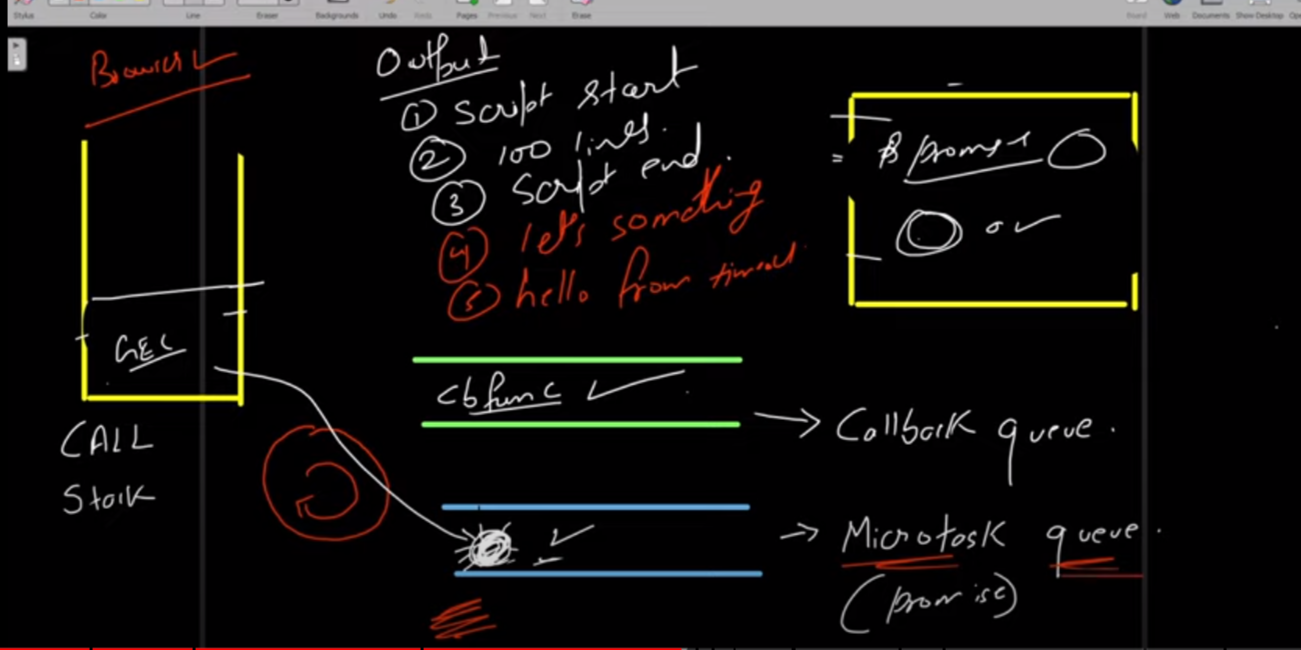 Stylus Color Line Eraser Backgrounds Undo Redo Pages Previous Next Erase Board Web Documents Show Desktop
Browser
Output
① Script start
② 100 lines.
③ Script end.
④ let's something
⑤ hello from timeout
GEC
CALL
Stack
cb func
→ Callback queue.
→ Microtask queue.
(promise)